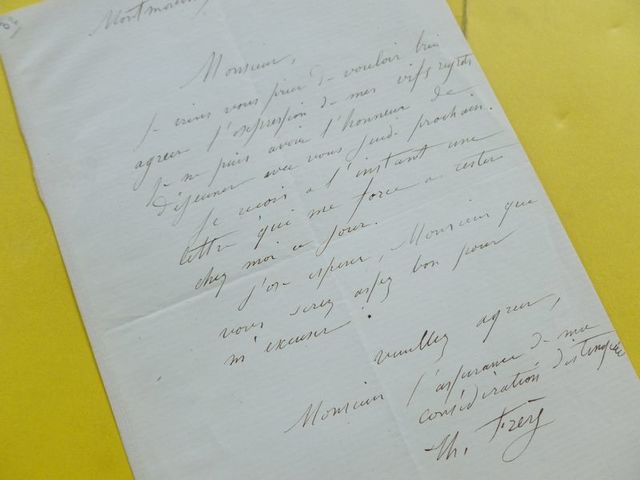 Monsieur,
Je viens vous prier de vouloir bien
agréer l'expression de mes vifs regrets
Je ne puis avoir l'honneur de
déjeuner avec vous jeudi prochain.
Je reçois à l'instant une
lettre qui me force à rester
chez moi ce jour.
J'ose espérer, Monsieur que
vous serez assez bon pour
m'excuser !
Veuillez agréer,
Monsieur l'assurance de ma
considération distinguée
Th. Frère